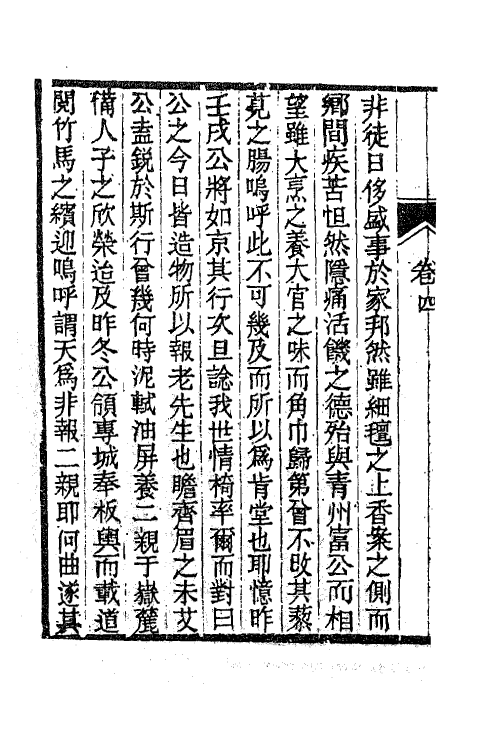 卷四
非徒日侈盛事於家邦然雖細氊之上香案之側而
鄉間疾苦怛然隱痛活饑之德殆與青州富公而相
望雖大烹之養大官之味而角巾歸第曾不改其藜
莧之腸嗚呼此不可幾及而所以為肯堂也耶憶昨
壬戌公將如京其行次旦諗我世情椅率爾而對曰
公之今日皆造物所以報老先生也瞻齊眉之未艾
公盍鋭於斯行曾幾何時泥軾油屏養二親于嶽麓
備人子之欣榮迨及昨冬公領專城奉板輿而載道
閱竹馬之繽迎嗚呼謂天為非報二親耶何曲遂其